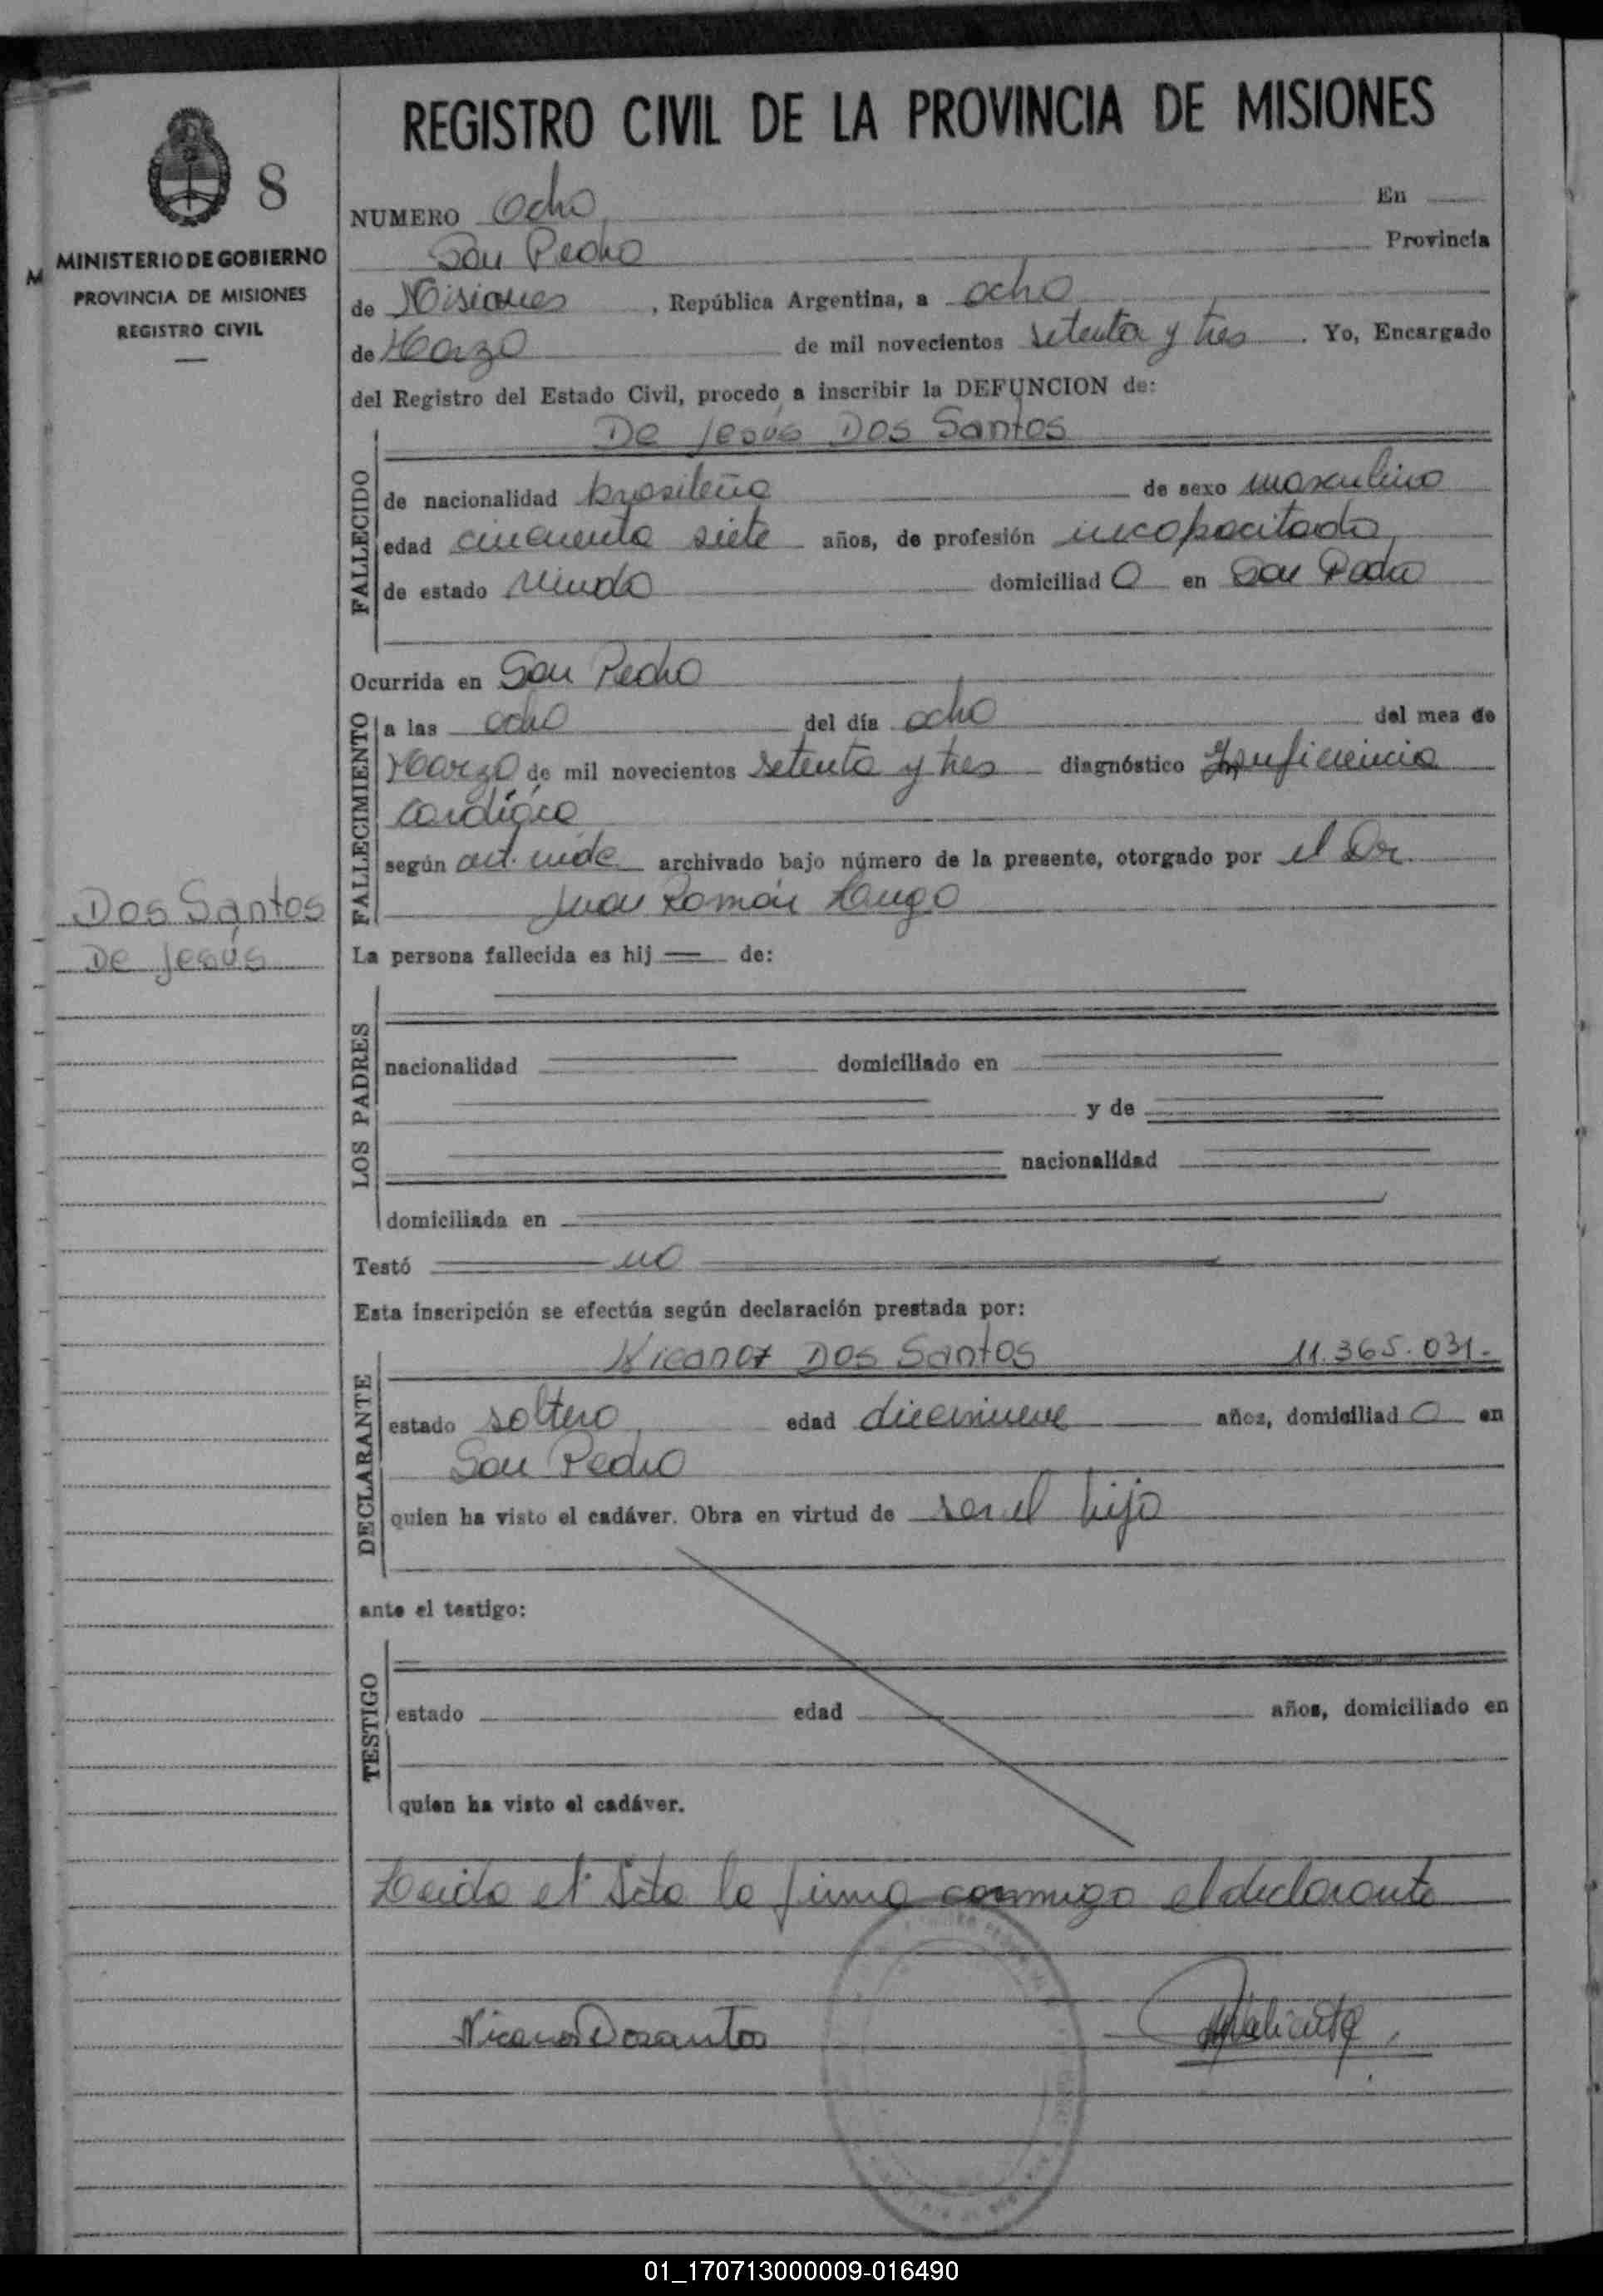 REGISTRO CIVIL DE LA PROVINCIA DE MISIONES
8
MINISTERIO DE GOBIERNO
PROVINCIA DE MISIONES
REGISTRO CIVIL
NUMERO Ocho En
San Pedro Provincia
de Misiones, República Argentina, a ocho
de Marzo de mil novecientos setenta y tres. Yo, Encargado
del Registro del Estado Civil, procedo a inscribir la DEFUNCION de:
De Jesús Dos Santos
FALLECIDO
de nacionalidad brasileña de sexo masculino
edad cincuenta siete años, de profesión incapacitado
de estado viudo domiciliado en San Pedro
Ocurrida en San Pedro
FALLECIMIENTO
a las ocho del día ocho del mes de
Marzo de mil novecientos setenta y tres diagnóstico Insuficiencia
cardíaca
según cert. mde archivado bajo número de la presente, otorgado por el Dr.
Juan Román
Dos Santos
De Jesús
La persona fallecida es hij — de:
LOS PADRES
nacionalidad domiciliado en
y de
nacionalidad
domiciliada en
Testó no
Esta inscripción se efectúa según declaración prestada por:
Nicanor Dos Santos 11.365.031.-
DECLARANTE
estado soltero edad diecinueve años, domiciliado en
San Pedro
quien ha visto el cadáver. Obra en virtud de ser el hijo
ante el testigo:
TESTIGO
estado edad años, domiciliado en
quien ha visto el cadáver.
Leida el Acta la firma conmigo el declarante
Nicanor Dosantos
01_170713000009-016490